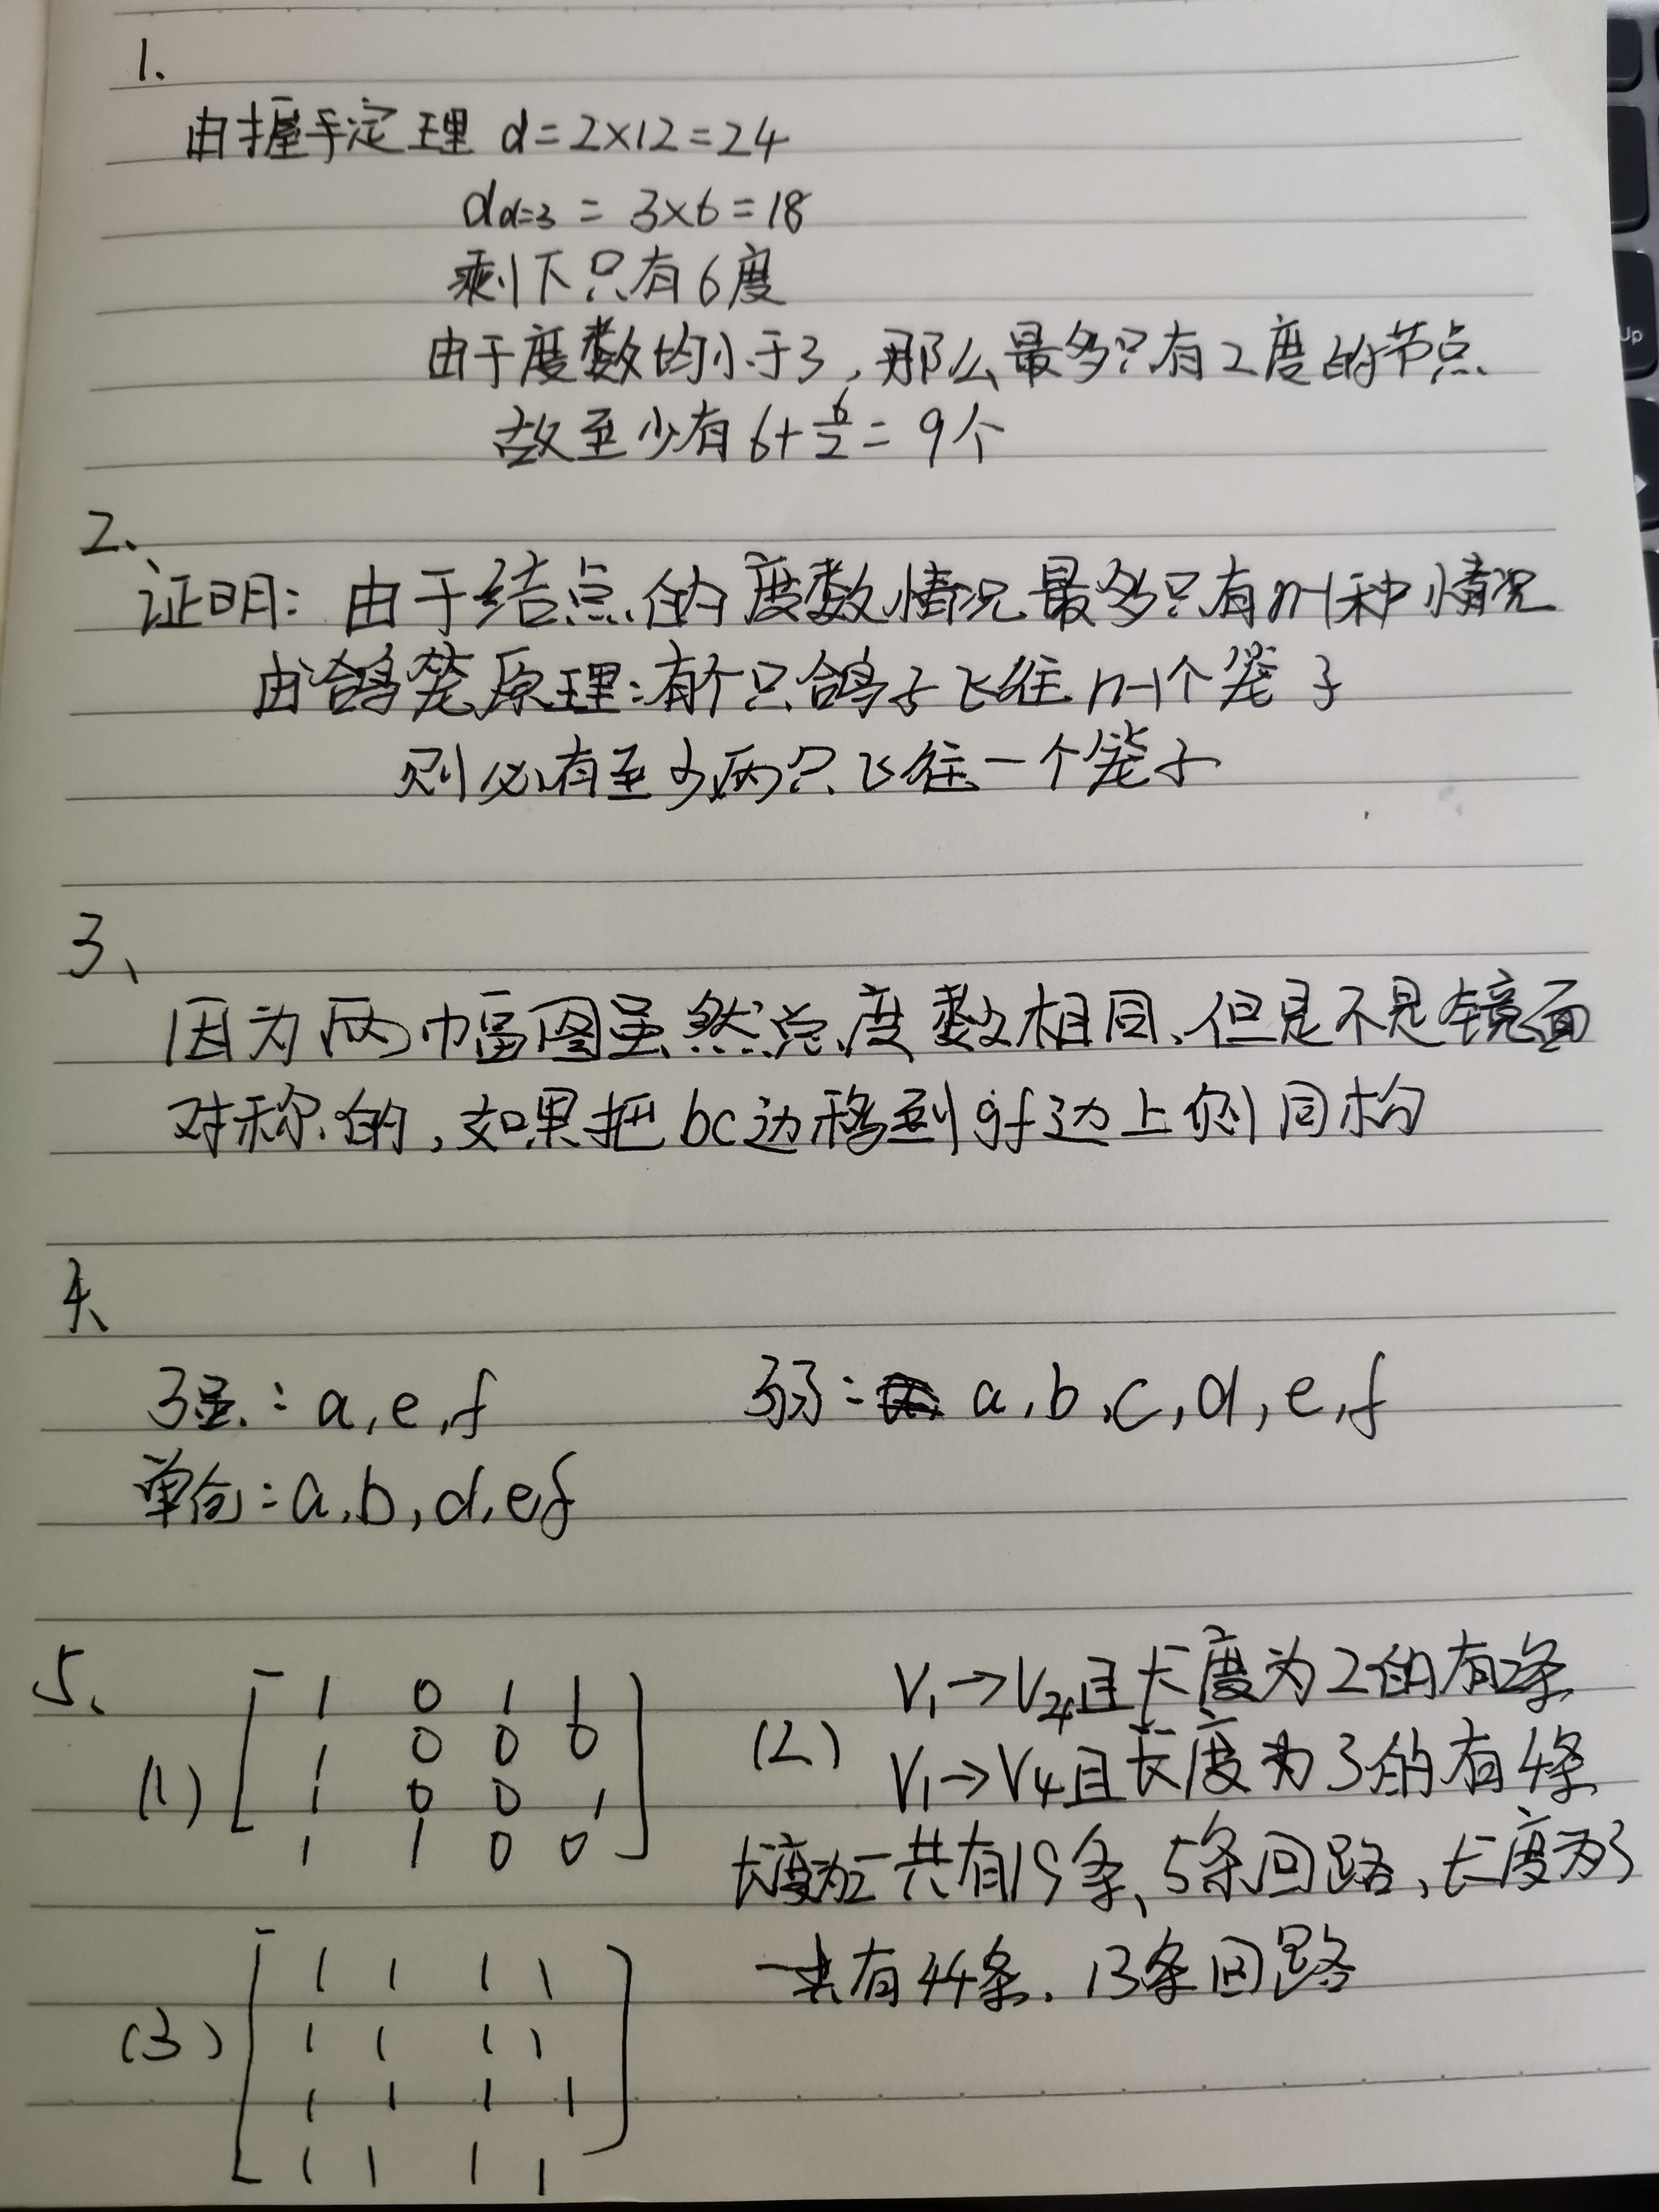 1.
由握手定理 d=2×12=24
d d=3 = 3×6=18
剩下只有6度
由于度数均小于3,那么最多只有2度的节点
故至少有6+6/2=9个
2、
证明: 由于结点的度数情况最多只有n-1种情况
由鸽笼原理:有n只鸽子飞往n-1个笼子
则必有至少两只飞往一个笼子
3、
因为两幅图虽然总度数相同,但是不是镜面
对称的,如果把bc边移到gf边上则同构
4、
强: a,e,f 弱: a,b,c,d,e,f
单向: a,b,d,e,f
5、
(1)
1 0 1 1
1 0 0 0
1 0 0 1
1 1 0 0
(2) V1→V4且长度为2的有2条
V1→V4且长度为3的有4条
长度为2一共有15条,5条回路,长度为3
一共有44条.13条回路
(3)
1 1 1 1
1 1 1 1
1 1 1 1
1 1 1 1
Up